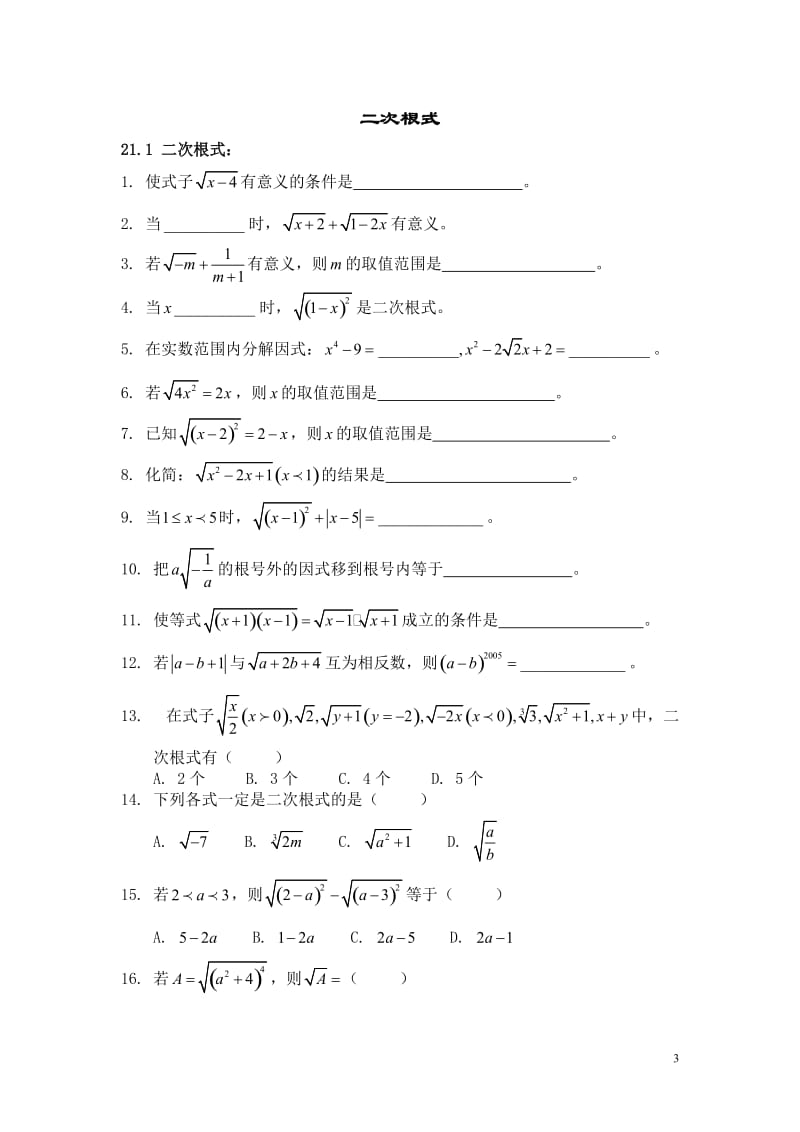 二次根式
21.1 二次根式：
1. 使式子 $\sqrt{x-4}$ 有意义的条件是____________________。
2. 当__________时，$\sqrt{x+2}+\sqrt{1-2x}$ 有意义。
3. 若 $\sqrt{-m}+\frac{1}{m+1}$ 有意义，则 $m$ 的取值范围是__________________。
4. 当 $x$__________时，$\sqrt{(1-x)^2}$ 是二次根式。
5. 在实数范围内分解因式：$x^4-9=$__________$,x^2-2\sqrt{2}x+2=$__________。
6. 若 $\sqrt{4x^2}=2x$，则 $x$ 的取值范围是____________________。
7. 已知 $\sqrt{(x-2)^2}=2-x$，则 $x$ 的取值范围是____________________。
8. 化简：$\sqrt{x^2-2x+1}(x\prec 1)$ 的结果是____________________。
9. 当 $1\leq x\prec 5$ 时，$\sqrt{(x-1)^2}+|x-5|=$_____________。
10. 把 $a\sqrt{-\frac{1}{a}}$ 的根号外的因式移到根号内等于_______________。
11. 使等式 $\sqrt{(x+1)(x-1)}=\sqrt{x-1}\sqrt{x+1}$ 成立的条件是_________________。
12. 若 $|a-b+1|$ 与 $\sqrt{a+2b+4}$ 互为相反数，则 $(a-b)^{2005}=$_____________。
13. 在式子 $\sqrt{\frac{x}{2}}(x\succ 0),\sqrt{2},\sqrt{y+1}(y=-2),\sqrt{-2x}(x\prec 0),\sqrt[3]{3},\sqrt{x^2+1},x+y$ 中，二
次根式有（　　）
A. 2 个　B. 3 个　C. 4 个　D. 5 个
14. 下列各式一定是二次根式的是（　　）
A. $\sqrt{-7}$　B. $\sqrt[3]{2m}$　C. $\sqrt{a^2+1}$　D. $\sqrt{\frac{a}{b}}$
15. 若 $2\prec a\prec 3$，则 $\sqrt{(2-a)^2}-\sqrt{(a-3)^2}$ 等于（　　）
A. $5-2a$　B. $1-2a$　C. $2a-5$　D. $2a-1$
16. 若 $A=\sqrt{(a^2+4)^4}$，则 $\sqrt{A}=$（　　）
3